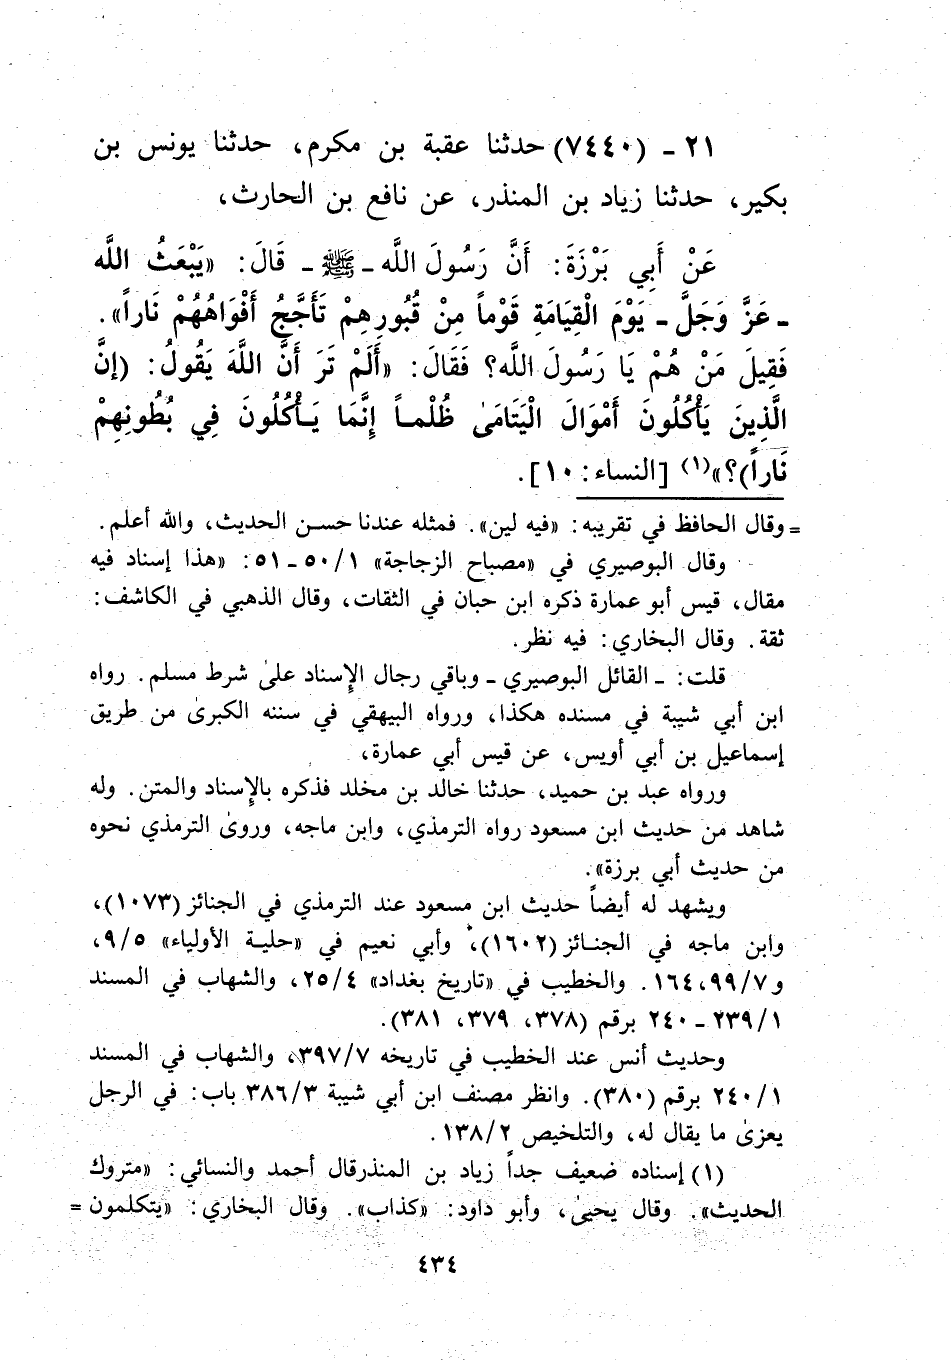 ٢١ - (٧٤٤٠) حدثنا عقبة بن مكرم، حدثنا يونس بن
بكير، حدثنا زياد بن المنذر، عن نافع بن الحارث،
عَنْ أَبِي بَرْزَةَ: أَنَّ رَسُولَ اللَّه - ﷺ - قَالَ: «يَبْعَثُ اللَّه
- عَزَّ وَجَلَّ - يَوْمَ الْقِيَامَةِ قَوْماً مِنْ قُبُورِهِمْ تَأَجَّجُ أَفْوَاهُهُمْ نَاراً».
فَقِيلَ مَنْ هُمْ يَا رَسُولَ اللَّه؟ فَقَالَ: «أَلَمْ تَرَ أَنَّ اللَّهَ يَقُولُ: (إنَّ
الَّذِينَ يَأْكُلُونَ أَمْوَالَ الْيَتَامَىٰ ظُلْمـاً إِنَّمَا يَـأْكُلُونَ فِي بُطُونِهِمْ
نَاراً)؟»(١) [النساء: ١٠].
= وقال الحافظ في تقريبه: «فيه لين». فمثله عندنا حسـن الحديث، والله أعلم.
وقال البوصيري في «مصباح الزجاجة» ٥٠/١ - ٥١: «هذا إسناد فيه
مقال، قيس أبو عمارة ذكره ابن حبان في الثقات، وقال الذهبي في الكاشف:
ثقة. وقال البخاري: فيه نظر.
قلت: - القائل البوصيري - وباقي رجال الإسناد علىٰ شرط مسلم. رواه
ابن أبي شيبة في مسنده هكذا، ورواه البيهقي في سننه الكبرىٰ من طريق
إسماعيل بن أبي أويس، عن قيس أبي عمارة،
ورواه عبد بن حميد، حدثنا خالد بن مخلد فذكره بالإسناد والمتن. وله
شاهد من حديث ابن مسعود رواه الترمذي، وابن ماجه، وروىٰ الترمذي نحوه
من حديث أبي برزة».
ويشهد له أيضاً حديث ابن مسعود عند الترمذي في الجنائز (١٠٧٣)،
وابن ماجه في الجنـائز (١٦٠٢)، وأبي نعيم في «حليـة الأولياء» ٩/٥،
و٩٩/٧، ١٦٤. والخطيب في «تاريخ بغداد» ٢٥/٤، والشهاب في المسند
٢٣٩/١ - ٢٤٠ برقم (٣٧٨، ٣٧٩، ٣٨١).
وحديث أنس عند الخطيب في تاريخه ٣٩٧/٧، والشهاب في المسند
٢٤٠/١ برقم (٣٨٠). وانظر مصنف ابن أبي شيبة ٣٨٦/٣ باب: في الرجل
يعزىٰ ما يقال له، والتلخيص ١٣٨/٢.
(١) إسناده ضعيف جداً زياد بن المنذرقال أحمد والنسائي: «متروك
الحديث». وقال يحيىٰ، وأبو داود: «كذاب». وقال البخاري: «يتكلمون =
٤٣٤